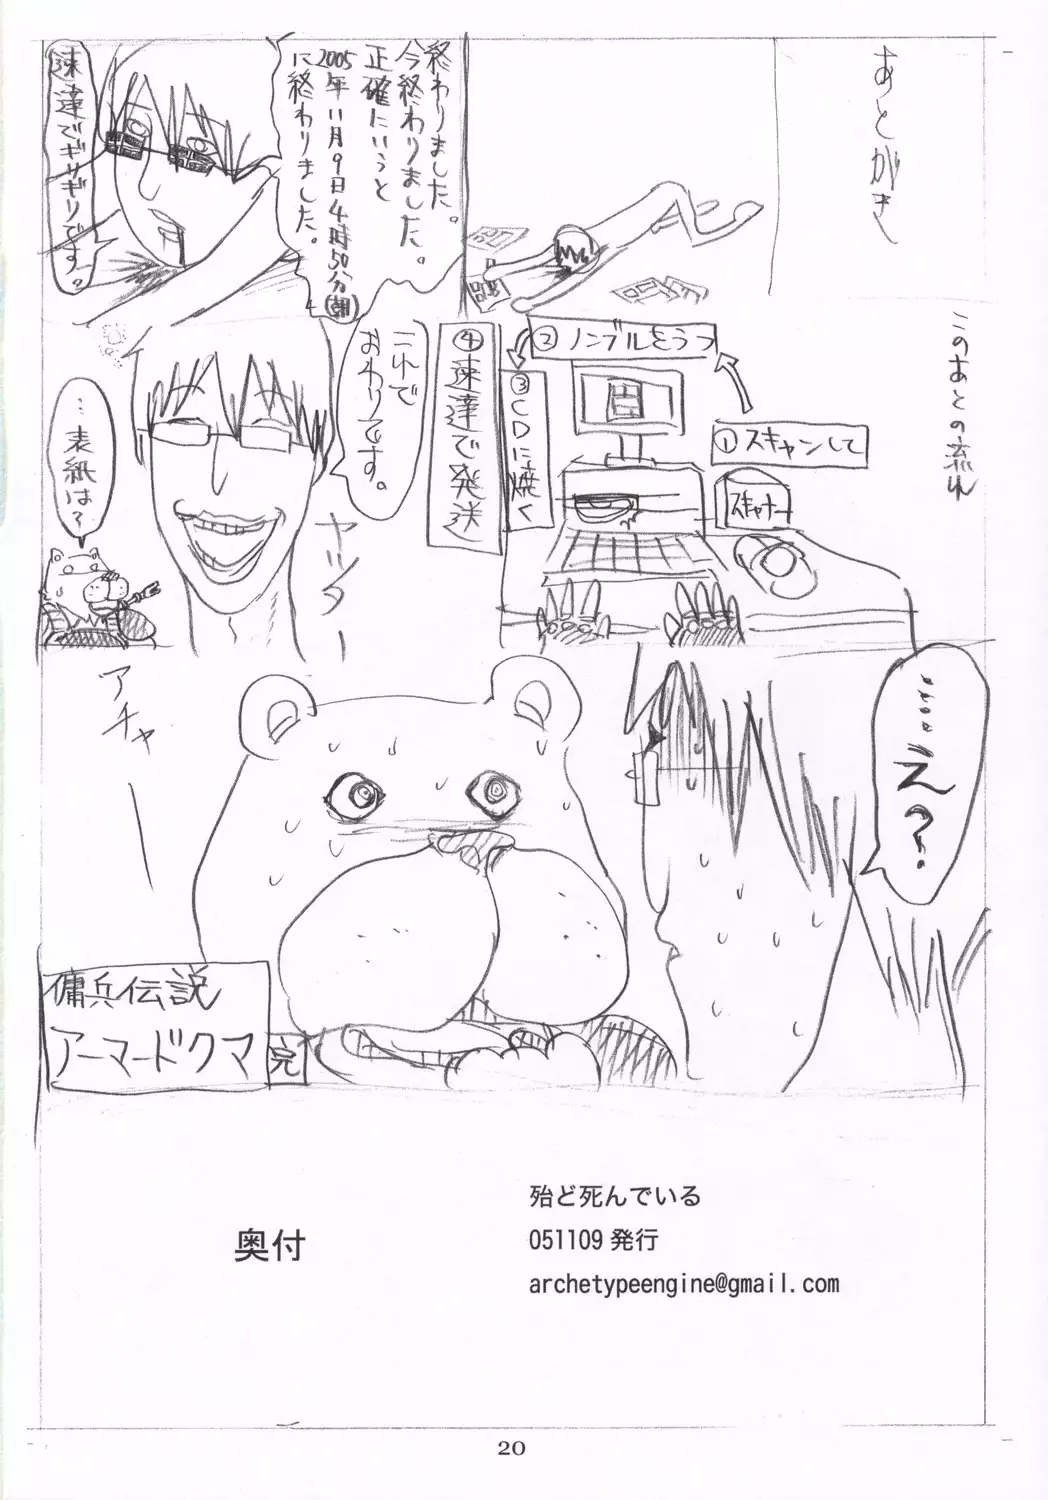 あとがき
終わりました。
今終わりました。
正確にいうと
2005年11月9日4時50分(朝)
に終わりました。
速達でギリギリです?
このあとの流れ
①スキャンして
スキャナー
②ノンブルをうつ
③CDに焼く
④速達で発送
これで
おわりです。
ヤッター
…表紙は?
……え?
アチャー
傭兵伝説
アーマードクマ
完
奥付
殆ど死んでいる
051109 発行
archetypeengine@gmail.com
20